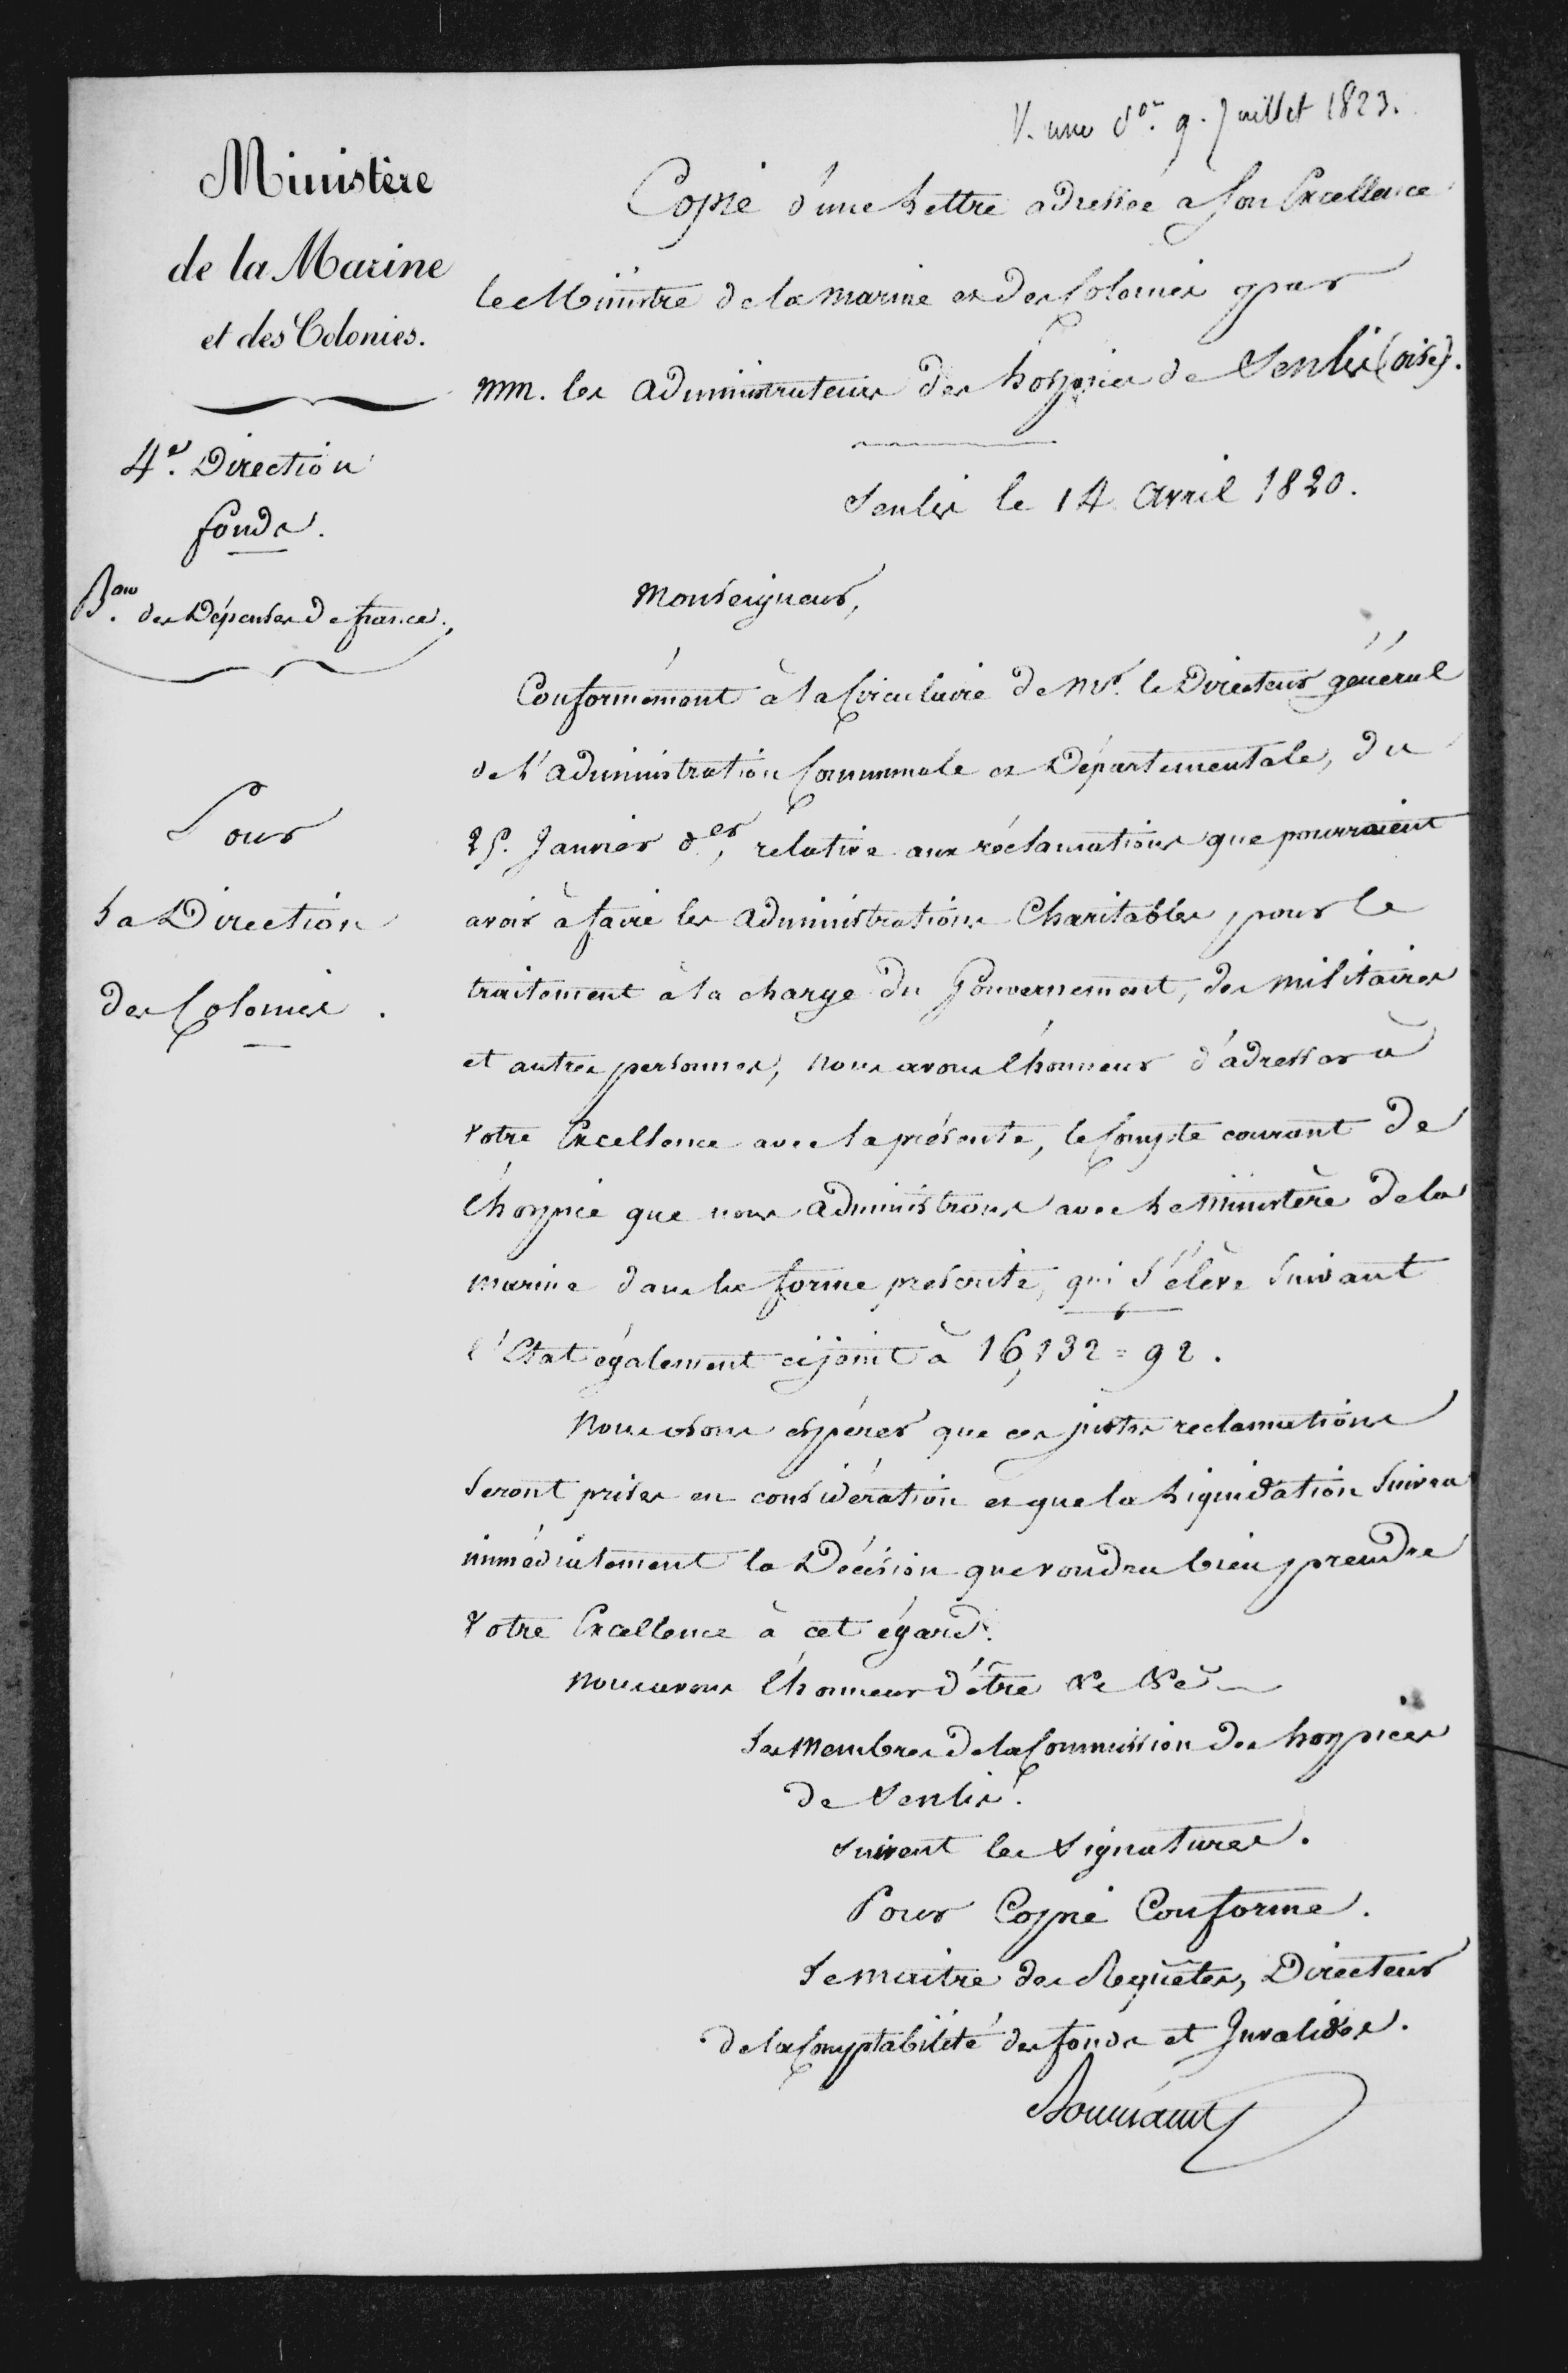 V. une don. 9. Juillet 1823.
Ministère
de la Marine
et des Colonies.
4e. Direction
fonds.
Bau. des Dépenses de france.
Pour
La Direction
des Colonies.
Copie d'une Lettre adressée a Son Excellence
le Ministre de la marine et des Colonies par
MM. les administrateurs des hospices de Senlis (oise).
Senlis le 14 avril 1820.
Monseigneur,
Conformément à la Circulaire de Mr. le Directeur général
de L'administration Communale et Départementale, du
25. Janvier der, relative aux réclamations que pourraient
avoir à faire les administrations Charitables, pour le
traitement à la charge du Gouvernement, des militaires
et autres personnes, nous avons l'honneur d'adresser à
votre Excellence avec la présente, le Compte courant de
l'hospice que nous administrons avec Le Ministère de la
marine dans la forme prescrite, qui S'élève Suivant
l'Etat également cijoint à 16,132 = 92.
Nous osons espérer que ces justes reclamations
Seront prises en considération et que la Liquidation Suivra
immédiatement la Décision que voudra bien prendre
Votre Excellence à cet égard.
Nous avons l'honneur d'être &c &c
Les Membres de la Commission des hospices
de Senlis.
Suivent les Signatures.
Pour Copie Conforme.
Le Maitre des Requêtes, Directeur
de la Comptabilité des fonds et Invalides.